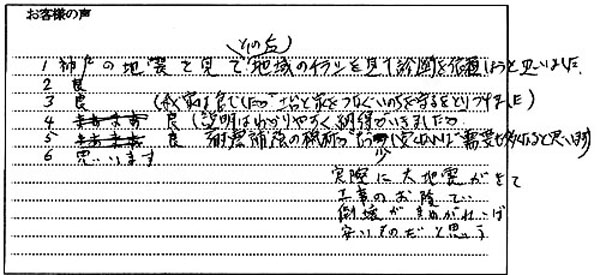 お客様の声
その点
1 神戸の地震を見て 地域のチラシを見て診断を依頼しようと思いました
2 良
3 良 (我家は良でしたが 土台と家をつなぐいのちを守るをとりつけました)
4 まあまあ 良 (説明はわかりやすく納得がいきました
5 まあまあ 良 耐震補強の税断が もう少し安ければ 需要も多くなると思います)
6 思います
実際に大地震がきて
工事のお陰で
倒壊がまぬがれれば
安いものだと思う